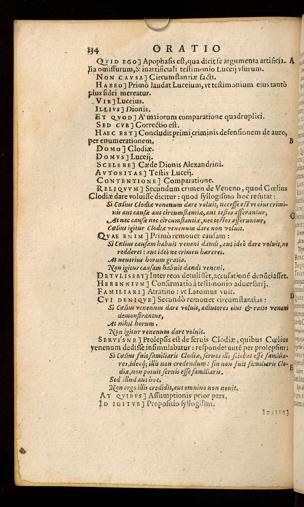 334 ORATIO
QUID EGO] Apophasis est, qua dicit se argumenta artificia- A
lia omissurum, & inartificiali testimonio Lucceij usurum.
NON CAUSA] Circumstantiæ facti.
HABEO] Primò laudat Lucceium, ut testimonium eius tantò
plus fidei mereatur.
VIR] Lucceius.
ILLIUS] Dionis.
ET QUOD] A' maiorum comparatione quadruplici.
SED CUR] Correctio est.
HAEC EST] Concludit primi criminis defensionem de auro,
per enumerationem. B
DOMO] Clodiæ.
DOMUS] Lucceij.
SCELERE] Cæde Dionis Alexandrini.
AUTORITAS] Testis Luccij.
CONTENTIONE] Comparatione.
RELIQVVM] Secundum crimen de Veneno, quod Cœlius
Clodiæ dare voluisse dicitur: quod syllogismo hoc refutat:
Si Cœlius Clodiæ venenum dare voluit, necesse est ut eius crimi-
nis aut causæ aut circumstantiæ, aut testes afferantur,
At nec causæ nec circumstantiæ, nec testes afferuntur,
Cœlius igitur Clodiæ venenum dare non voluit.
QUAE ENIM] Primò remouet causam:
Si Cœlius causam habuit veneni dandi, aut ideò dare voluit, ne
redderet: aut ideo ne crimen hæreret.
At neutrius horum gratia.
Non igitur causam habuit dandi veneni.
DETULISSET] Interreos detulisset, accusatione denūciasset.
HERENNIUM] Confirmatio à testimonio aduersarij.
FAMILIARI] Atratino: ut Latomus vult.
CUI DENIQUE] Secundò remouet circumstantias:
Si Cœlius venenum dare voluit, adiutores eius & ratio veneni
demonstrantur,
At nihil horum.
Non igitur venenum dare voluit.
SERVISNE] Prolepsis est de seruis Clodiæ, quibus Cœlius
venenum dedisse insimulabatur: respondet autē per prolepsim:
Sed illud aut hoc.
Non ergo illis credidit, aut omnino non nouit.
AT QUIBUS] Assumptionis prior pars.
ID IGITUR] Propositio syllogismi.